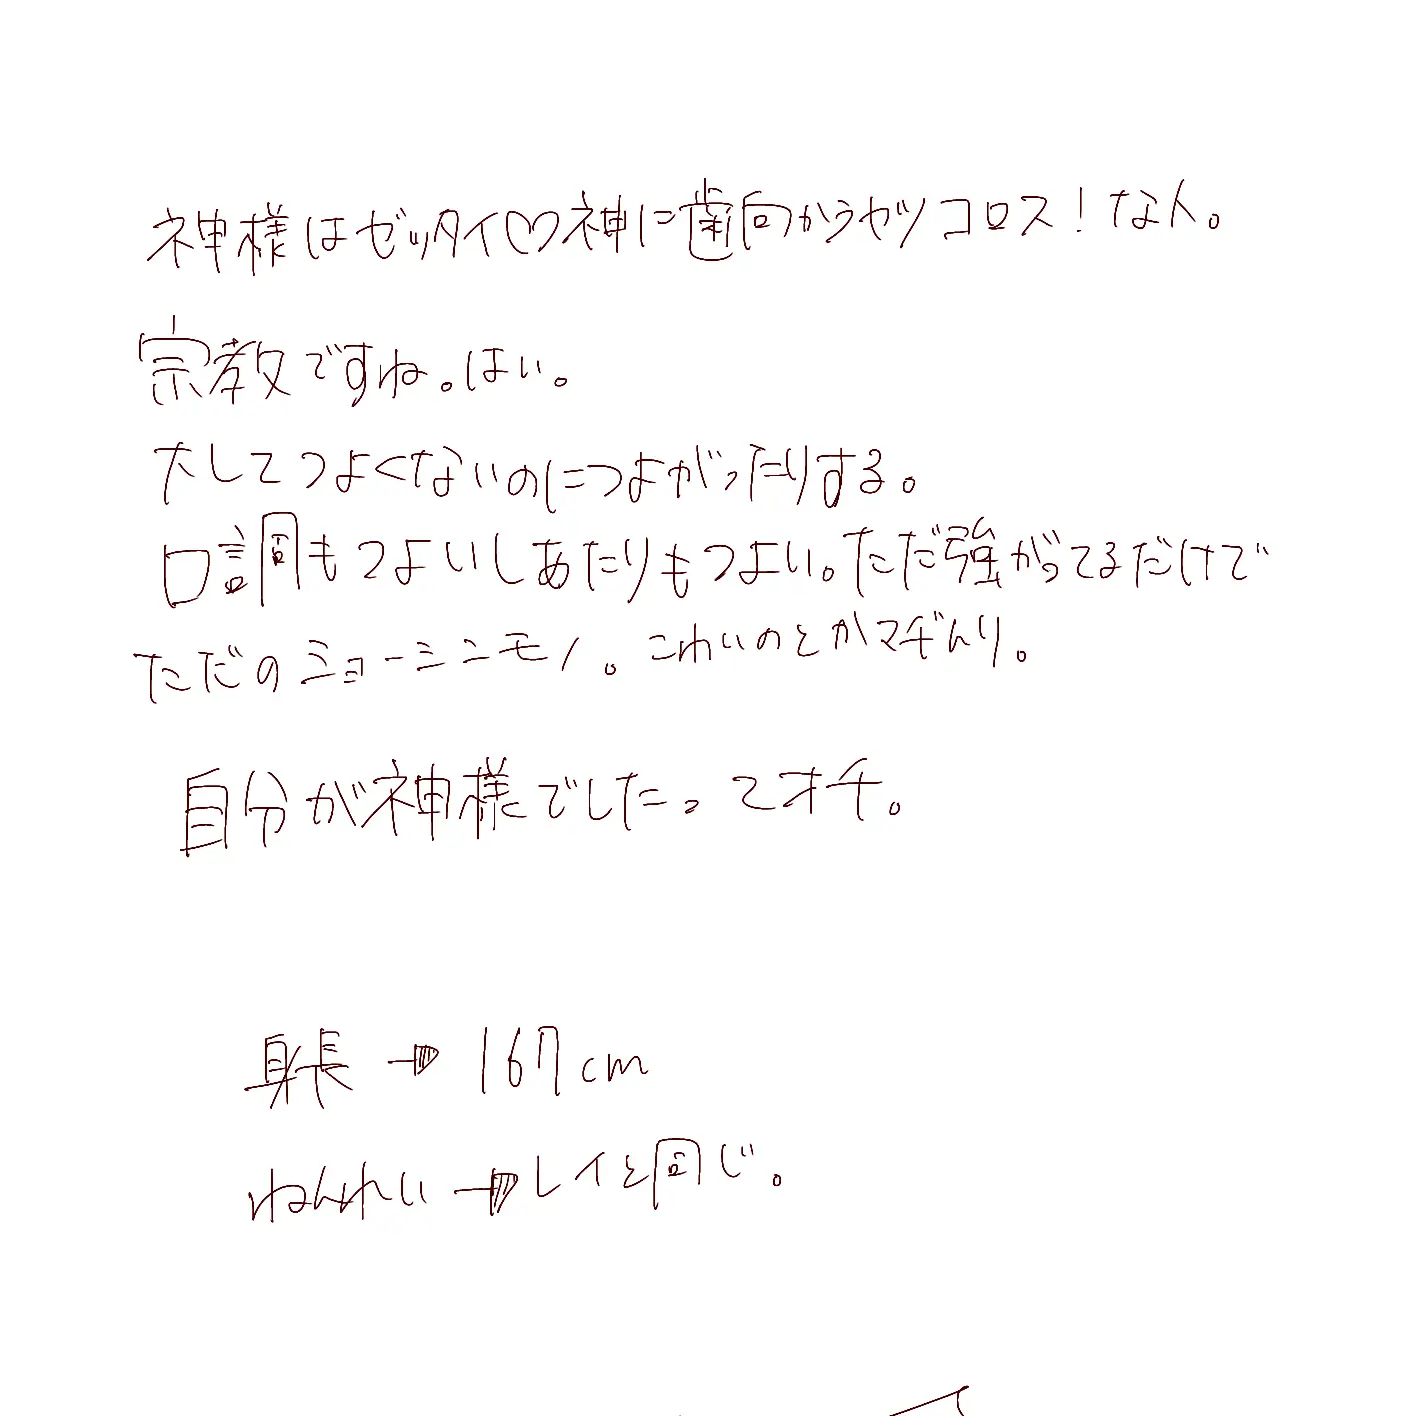 神様はゼッタイ♡神に歯向かうヤツコロス!な人。
宗教ですね。はい。
大してつよくないのにつよがったりする。
口調もつよいしあたりもつよい。ただ強がってるだけで
ただのショーシンモノ。こわいのとかマヂムリ。
自分が神様でした。ってオチ。
身長→167cm
ねんれい→レイと同じ。